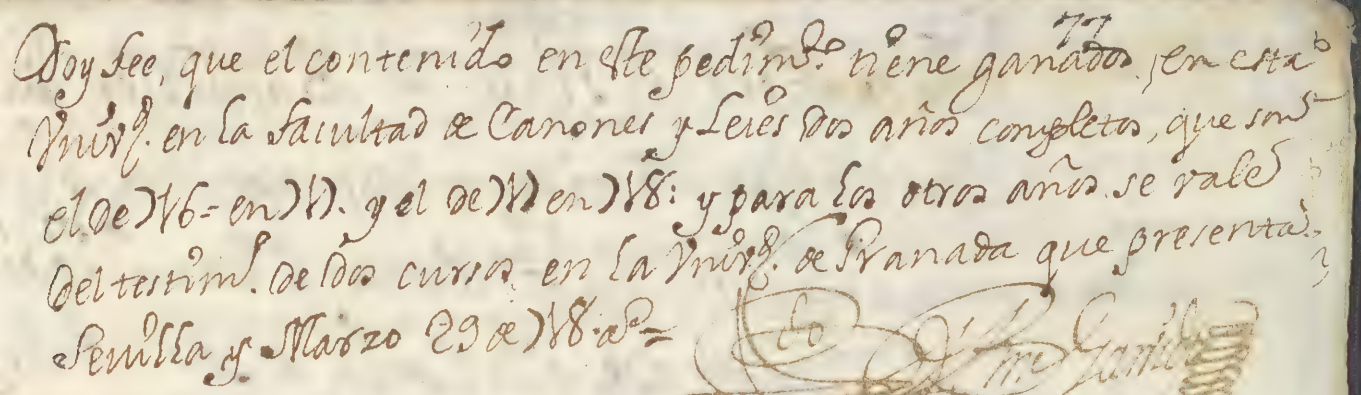 77
Doy fee, que el contenido en este pedim.to tiene ganados, en esta
Vniv.d en la facultad de Canones y Leies dos años completos, que son
el de 716= en 717. y el de 717 en 718: y para los otros años se vale
del testim.o de dos cursos en la Vniv.d de Granada que presenta.
Sevilla y Marzo 29 de 718. as=